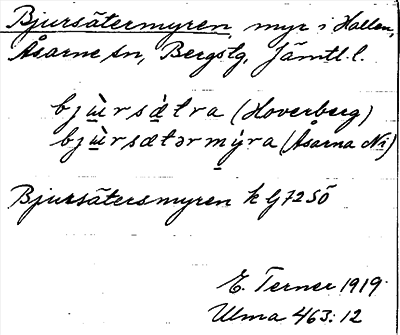 Bjursätermyren, myr i Hallen,
Åsarne sn, Bergs tg, Jämtl. l.
bjɯ̀rsæ̀tra (Hoverberg)
bjɯ̀rsætərmỳra (Åsarna Ni)
Bjursätersmyren k G 72 SÖ
E. Terner 1919.
Ulma 463:12